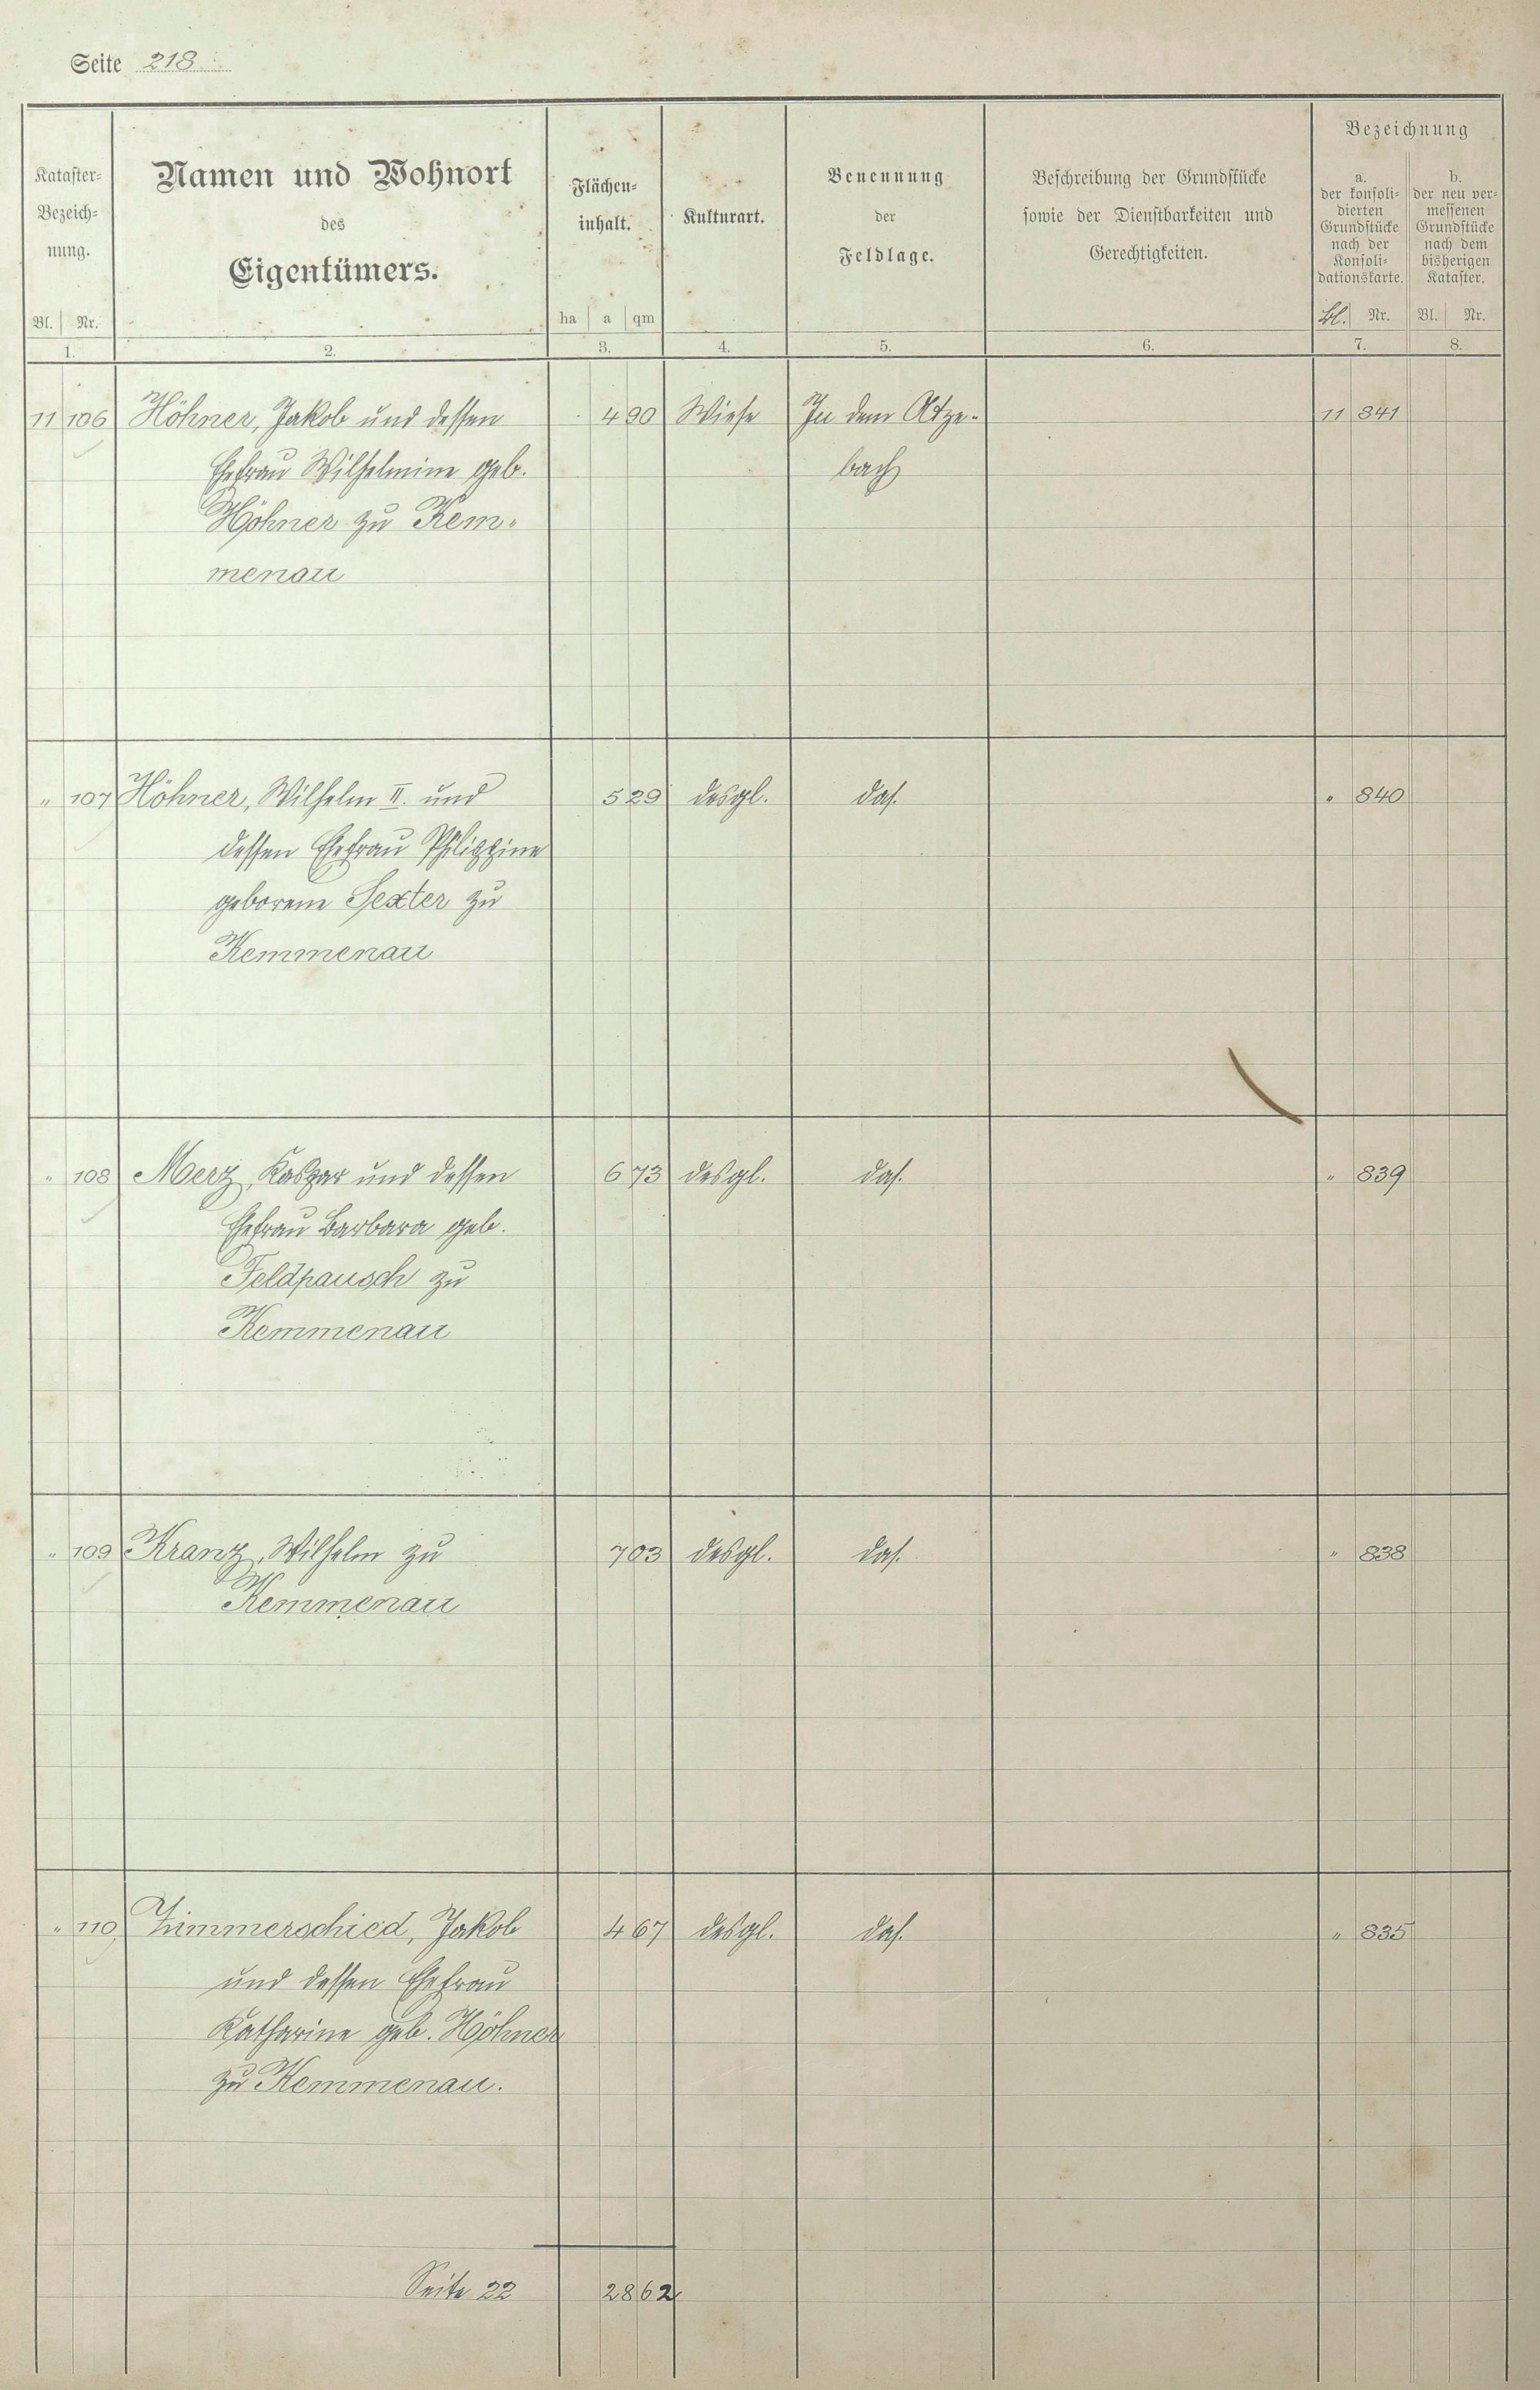 Seite 218
Kataster-
Bezeich-
nung.
Bl. Nr.
1.
Namen und Wohnort
des
Eigentümers.
2.
Flächen-
inhalt.
ha a qm
3.
Kulturart.
4.
Benennung
der
Feldlage.
5.
Beschreibung der Grundstücke
sowie der Dienstbarkeiten und
Gerechtigkeiten.
6.
Bezeichnung
a.
der konsoli-
dierten
Grundstücke
nach der
Konsoli-
dationskarte.
Bl. Nr.
7.
b.
der neu ver-
messenen
Grundstücke
nach dem
bisherigen
Kataster.
Bl. Nr.
8.
11 106 Höhner, Jakob und dessen 4 90 Wiese In dem Atze- 11 841
Ehefrau Wilhelmine geb. bach
Höhner zu Kem-
menau
" 107 Höhner, Wilhelm II. und 5 29 desgl. das. " 840
dessen Ehefrau Philippine
geborene Sexter zu
Kemmenau
" 108 Merz, Kaspar und dessen 6 73 desgl. das. " 839
Ehefrau Barbara geb.
Feldpausch zu
Kemmenau
" 109 Kranz, Wilhelm zu 7 03 desgl. das. " 838
Kemmenau
" 110 Zimmerschied, Jakob 4 67 desgl. das. " 835
und dessen Ehefrau
Katharine geb. Höhner
zu Kemmenau.
Seite 22 28 62